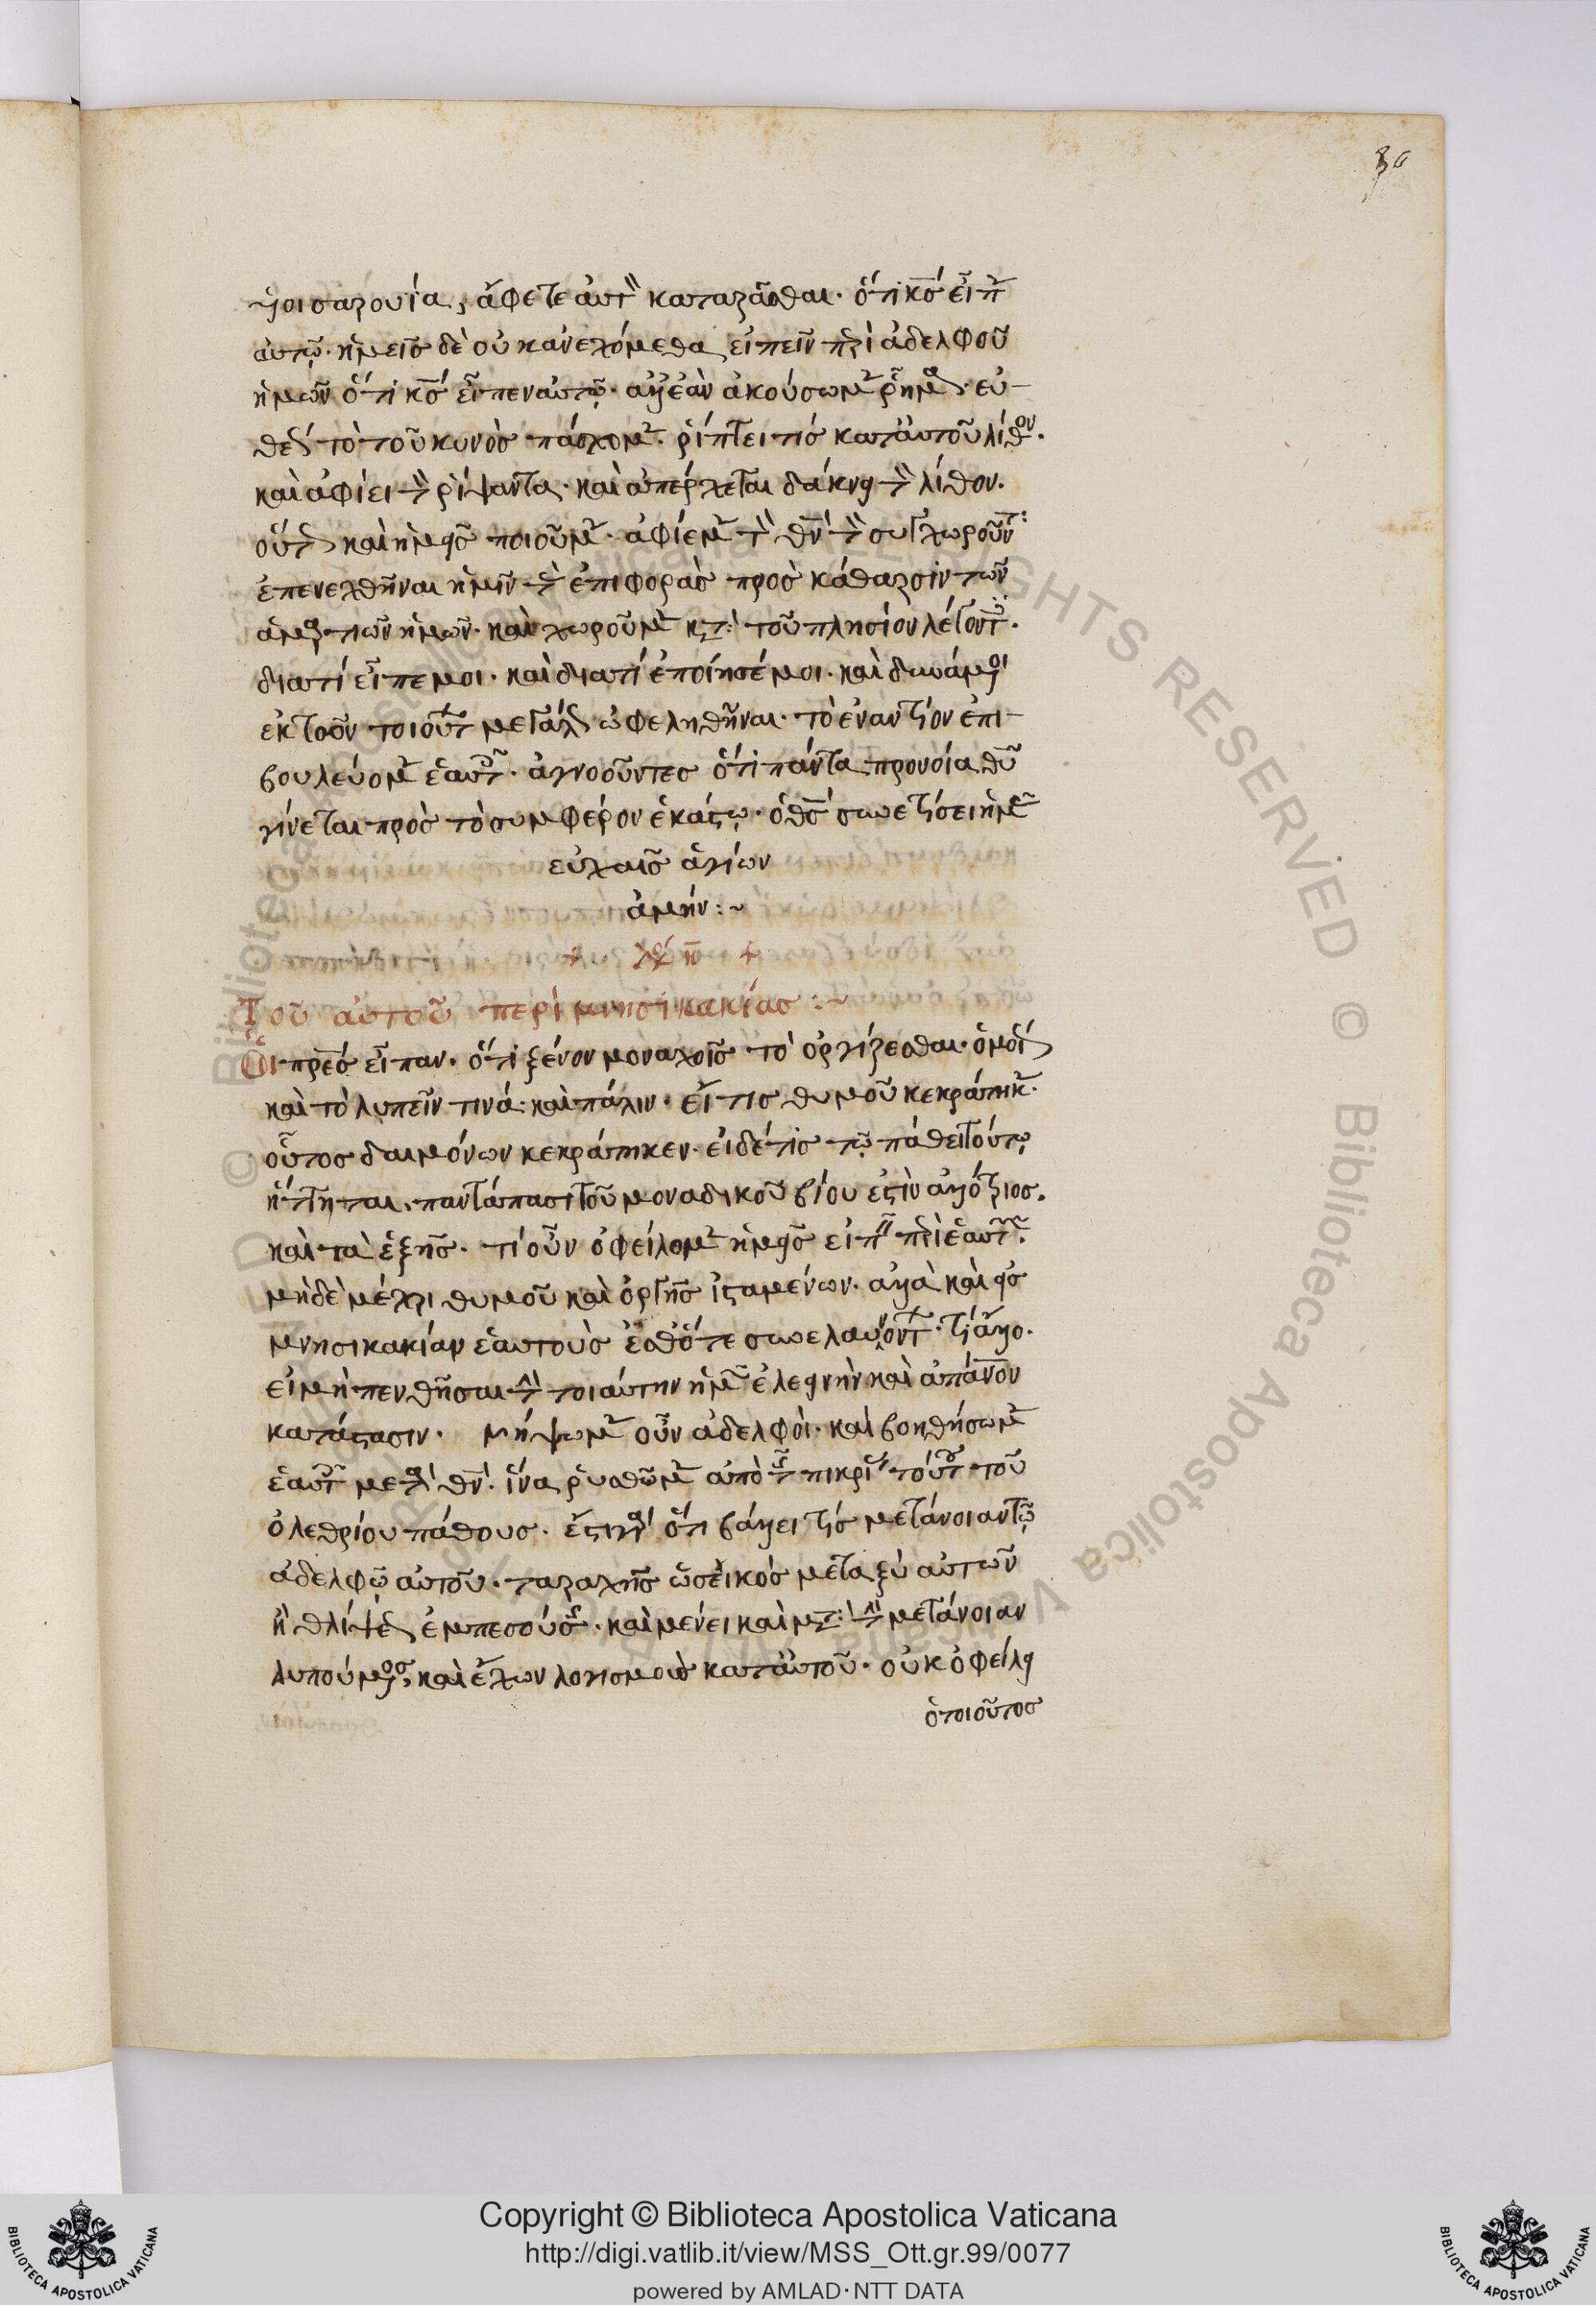 36
υἱοὶ σαρουία, ἄφετε αὐτὸν καταρᾶσθαι. ὅτι κσ εἶπεν
αὐτῷ. ἡμεῖς δὲ οὐκ ἀνεχόμεθα εἰπεῖν περὶ ἀδελφοῦ
ἡμῶν ὅτι κσ εἶπεν αὐτῷ. ἀλλ' ἐὰν ἀκούσωμεν ῥῆμα. εὐ-
θέως τὸ τοῦ κυνὸς πάσχομεν. ῥίπτει τις κατ' αὐτοῦ λίθον.
καὶ ἀφίει τὸν ῥίψαντα. καὶ ἀπέρχεται δάκνειν τὸν λίθον.
οὕτως καὶ ἡμεῖς ποιοῦμεν. ἀφίεμεν τὸν θν τὸν συγχωροῦντα
ἐπενεχθῆναι ἡμῖν τὰς ἐπιφορὰς πρὸς κάθαρσιν τῶν
ἁμαρτιῶν ἡμῶν. καὶ χωροῦμεν κατὰ τοῦ πλησίον λέγοντες.
διατί εἶπέ μοι. καὶ διατί ἐποίησέ μοι. καὶ δυνάμενοι
ἐκ τῶν τοιούτων μεγάλως ὠφεληθῆναι. τὸ ἐναντίον ἐπι-
βουλεύομεν ἑαυτοῖς. ἀγνοοῦντες ὅτι πάντα προνοία θυ
γίνεται πρὸς τὸ συμφέρον ἑκάστῳ. ὁ θσ συνετίσει ἡμᾶς
εὐχαῖς ἁγίων
ἀμήν:~
Τοῦ αὐτοῦ περὶ μνησικακίας:~
Οἱ πρες εἶπαν. ὅτι ξένον μοναχοῖς τὸ ὀργίζεσθαι. ὁμοίως
καὶ τὸ λυπεῖν τινά. καὶ πάλιν. εἴ τις θυμοῦ κεκράτηκεν.
οὗτος δαιμόνων κεκράτηκεν. εἰ δέ τις τῷ πάθει τούτῳ
ἥττηται. παντάπασι τοῦ μοναδικοῦ βίου ἐστὶν ἀλλότριος.
καὶ τὰ ἑξῆς. τί οὖν ὀφείλομεν ἡμεῖς εἰπεῖν περὶ ἑαυτῶν.
μηδὲ μέχρι θυμοῦ καὶ ὀργῆς ἱσταμένων. ἀλλὰ καὶ εἰς
μνησικακίαν ἑαυτοὺς ἔσθ' ὅτε συνελαυνόντων. τί ἄλλο.
εἰ μὴ πενθῆσαι τὴν τοιαύτην ἡμῶν ἐλεεινὴν καὶ ἀπάνον
κατάστασιν. νήψωμεν οὖν ἀδελφοί. καὶ βοηθήσωμεν
ἑαυτοῖς μετὰ θν. ἵνα ῥυσθῶμεν ἀπὸ τῆς πικρίας τούτου τοῦ
ὀλεθρίου πάθους. ἔστι γὰρ ὅτι βάλλει τις μετάνοιαν τῷ
ἀδελφῷ αὐτοῦ. ταραχῆς ὡς εἰκὸς μεταξὺ αὐτῶν
ἢ θλίψεως ἐμπεσούσης. καὶ μένει καὶ μετὰ τὴν μετάνοιαν
λυπούμενος, καὶ ἔχων λογισμοὺς κατ' αὐτοῦ. οὐκ ὀφείλει
ὁ τοιοῦτος
Copyright © Biblioteca Apostolica Vaticana
http://digi.vatlib.it/view/MSS_Ott.gr.99/0077
powered by AMLAD·NTT DATA